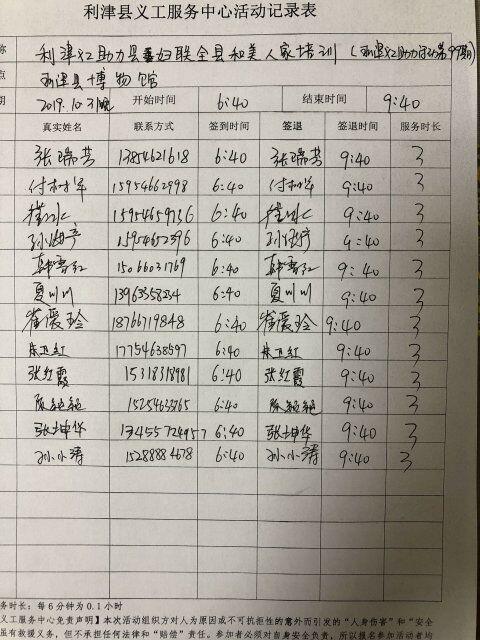 利津县义工服务中心活动记录表
称 利津义工助力县妇联全县和美人家培训
点 利津县博物馆
期 2019.10.31晚 开始时间 6:40 结束时间 9:40
真实姓名 联系方式 签到时间 签退 签退时间 服务时长
张瑞芳 13854621618 6:40 张瑞芳 9:40 3
15954662998 6:40 9:40 3
6:40 9:40 3
15954652396 6:40 9:40 3
韩秀红 15066031769 6:40 韩秀红 9:40 3
夏川川 13963358234 6:40 夏川川 9:40 3
崔爱玲 18766719848 6:40 崔爱玲 9:40 3
朱卫红 17754638597 6:40 朱卫红 9:40 3
张红霞 15318318981 6:40 张红霞 9:40 3
陈艳艳 6:40 陈艳艳 9:40 3
张坤华 13455724957 6:40 张坤华 9:40 3
孙小涛 15288884678 6:40 孙小涛 9:40 3
务时长：每6分钟为0.1小时
义工服务中心免责声明】本次活动组织方对人为原因或不可抗拒性的意外而引发的“人身伤害”和“安全
虽有救援义务，但不承担任何法律和“赔偿”责任。参加者必须对自身安全负责，所以报名参加活动者均